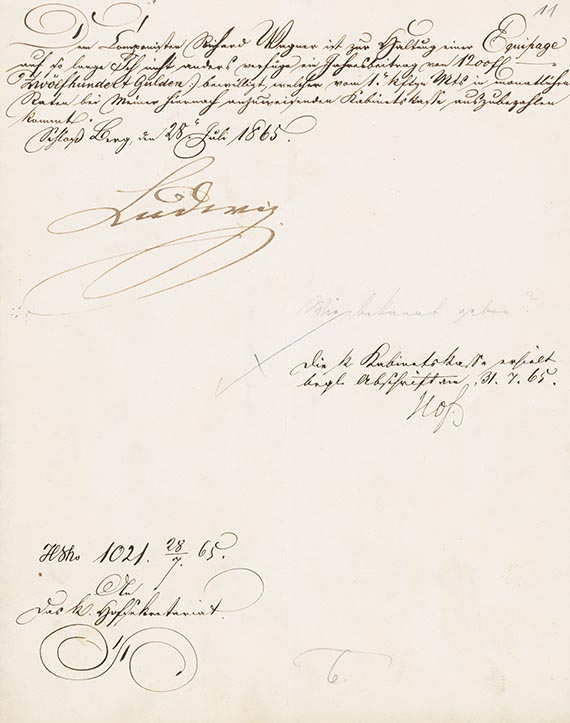 11
Dem Componisten Richard Wagner ist zur Haltung einer Equipage
auf so lange Ich nicht anders verfüge ein Jahresbeitrag von 1200 fl
(Zwölfhundert Gulden:) bewilligt, welcher vom 1. kftgn Mts in monatlichen
Raten bei Meiner hiernach anzuweisenden Kabinetskasse auszubezahlen
kommt.
Schloß Berg, den 28. Juli 1865.
Ludwig
bekannt geben?
Die k Kabinetskasse erhielt
begl. Abschrift am 31. 7. 65.
Hof
1021. 28/7. 65.
An
das k. Hofsekretariat.